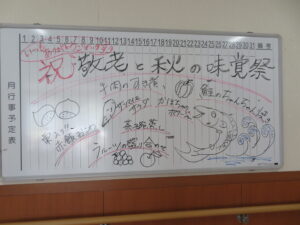 1 2 3 4 5 6 7 8 9 10 11 12 13 14 15 16 17 18 19 20 21 22 23 24 25 26 27 28 29 30 31 備考
いつもありがとうございます
祝 敬老と秋の味覚祭
月行事予定表
牛肉の
鮭のちゃんちゃん焼き
サラダ
かぼちゃ
茶碗蒸し
フルーツの盛り合わせ